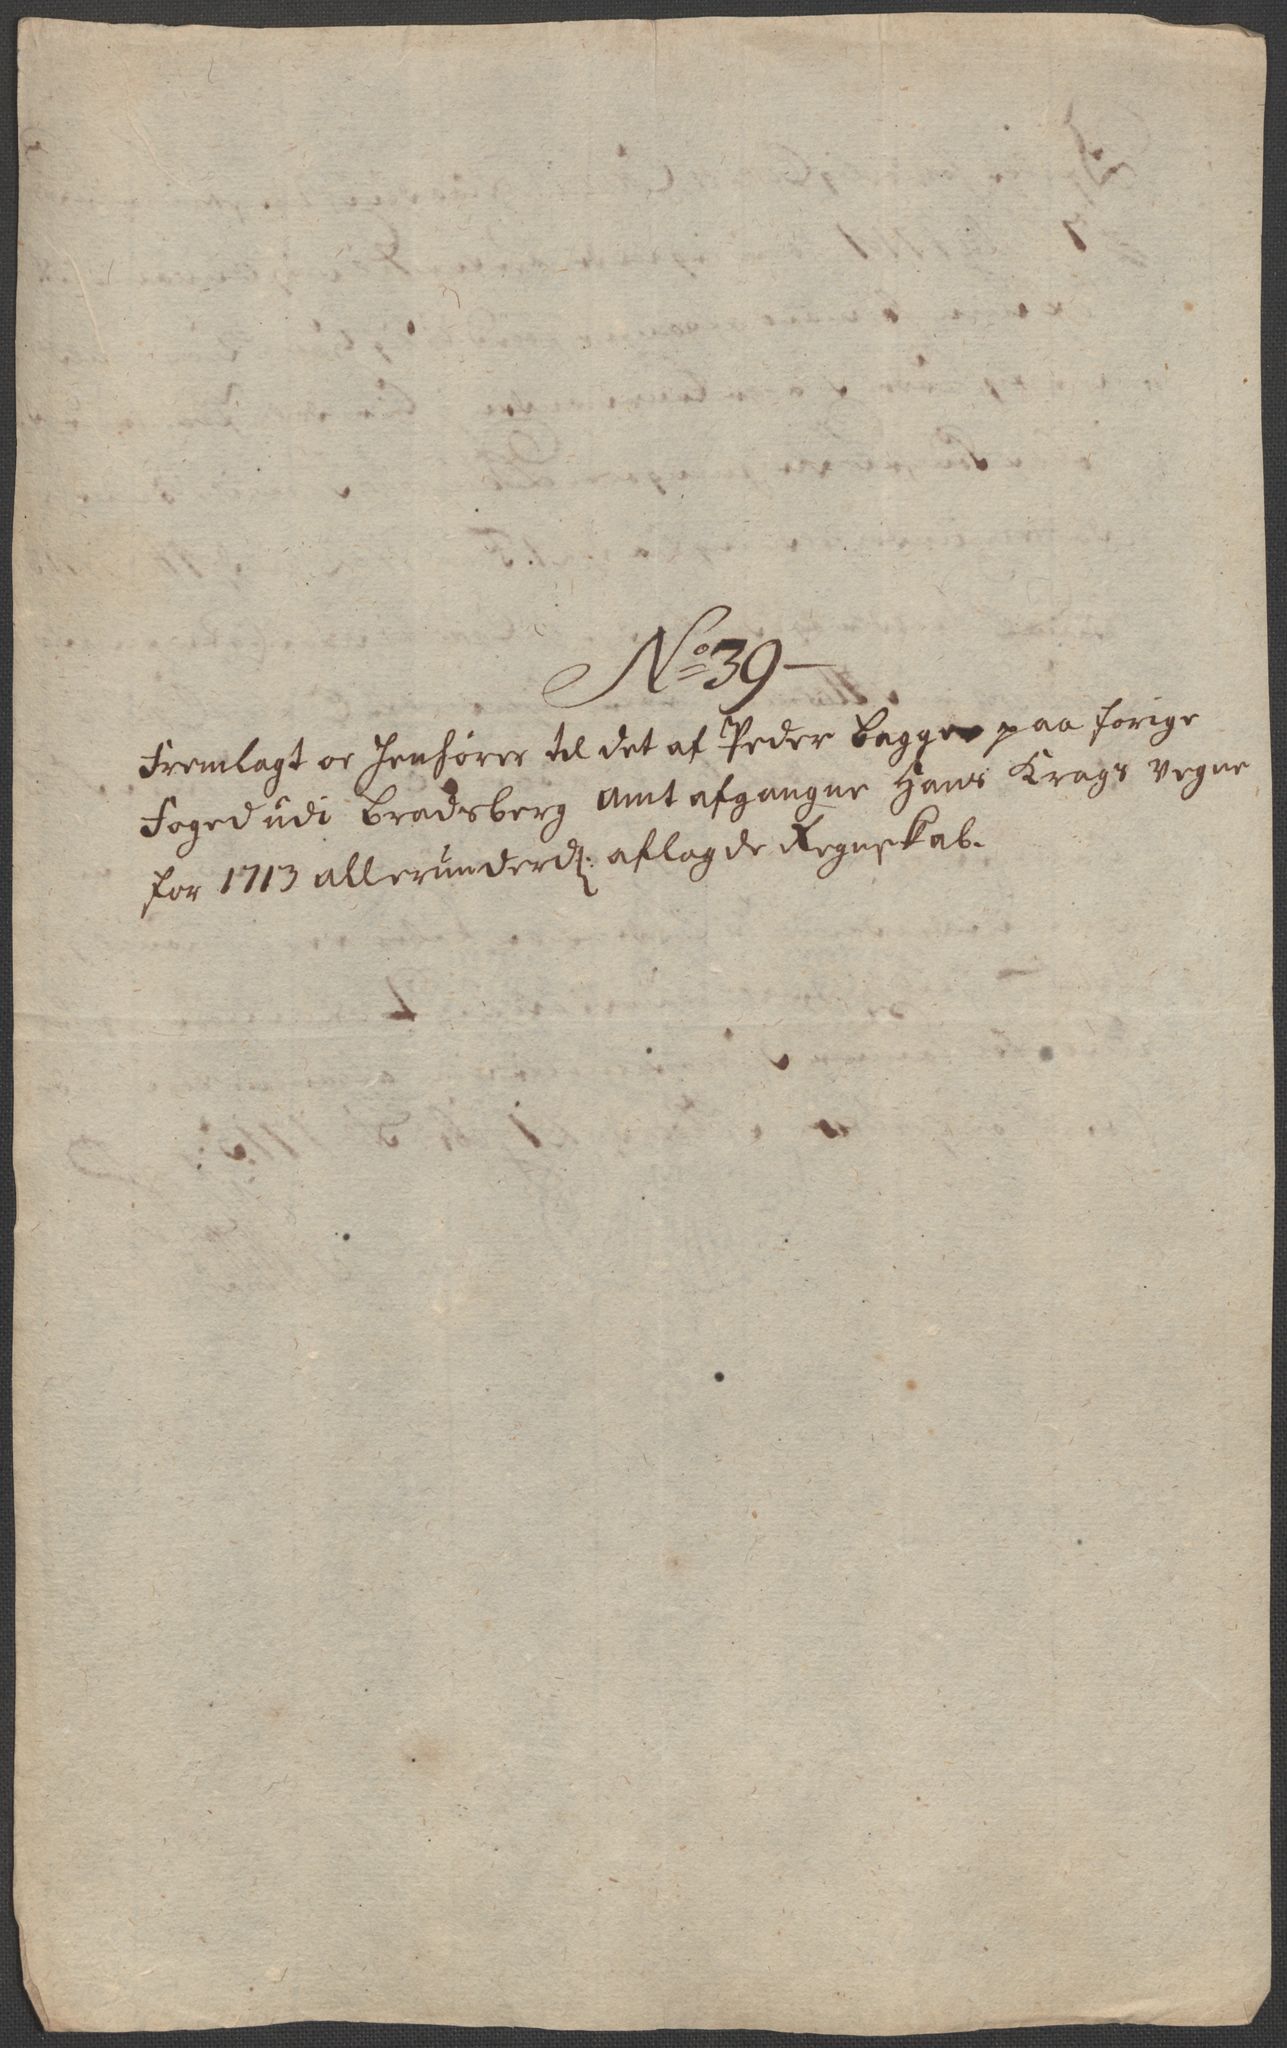 No 39
Fremlagt oc Henhører til det af Peder Bagge paa forige
Foged udi Bradsberg Amt afgangne Hans Krags Vegne
for 1713 allerunderd: aflagde Regnskab.